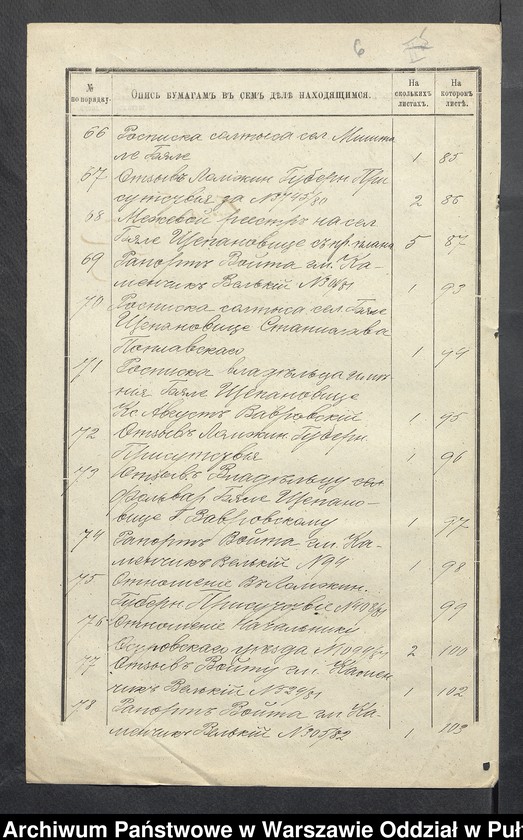 6
№ по порядку.
Опись бумагамъ въ семъ дѣлѣ находящимся.
На сколькихъ листахъ.
На которомъ листѣ.
66 Росписка солтыса сел.
ле Гяле 1 85
67 Отзывъ Ломжин. Губерн. При
сутствія за 2 86
68 Межевой реестръ на сел
Гяле Щепановице съ 5 87
69 Рапортъ Войта гм. Ка-
менчик Велькій 1 93
70 Росписка солтыса сел. Гяле
Щепановице Станислава
Поплавскаго 1 94
71 Росписка владѣльца имѣ
нія Гяле Щепановице
Кс Августъ Завровскій 1 95
72 Отзывъ Ломжин. Губерн.
Присутствія 1 96
73 Отзывъ Владѣльцу
Фольвар Гяле Щепано-
вице Г Завровскому 1 97
74 Рапортъ Войта гм. Ка-
менчикъ Велькій № 94 1 98
75 Отношеніе Въ Ломжин.
Губерн Присутствіе 99
76 Отношеніе Начальнику
уѣзда 2 100
77 Отзывъ Войту гм. Камен
чикъ Велькій № 329/81 1 102
78 Рапортъ Войта гм. Ка-
менчикъ Велькій № 305/82 1 103
Archiwum Państwowe w Warszawie Oddział w Puł